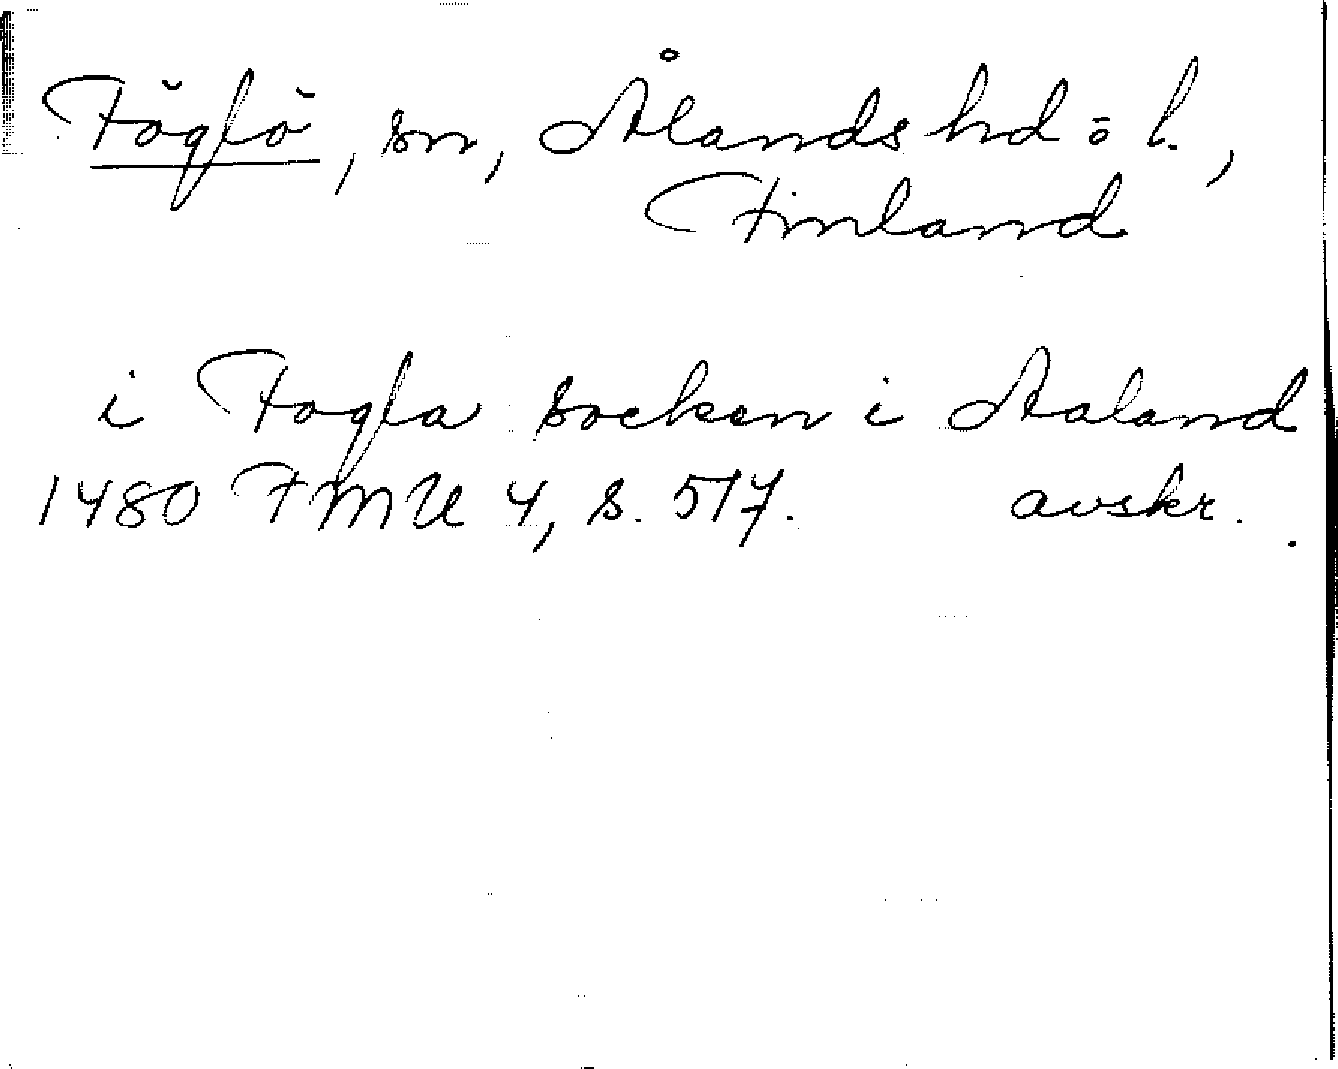 Föglö, sn, Ålands hd o l.,
Finland
i Fogla socken i Aaland
1480 FMU 4, s. 517. avskr.